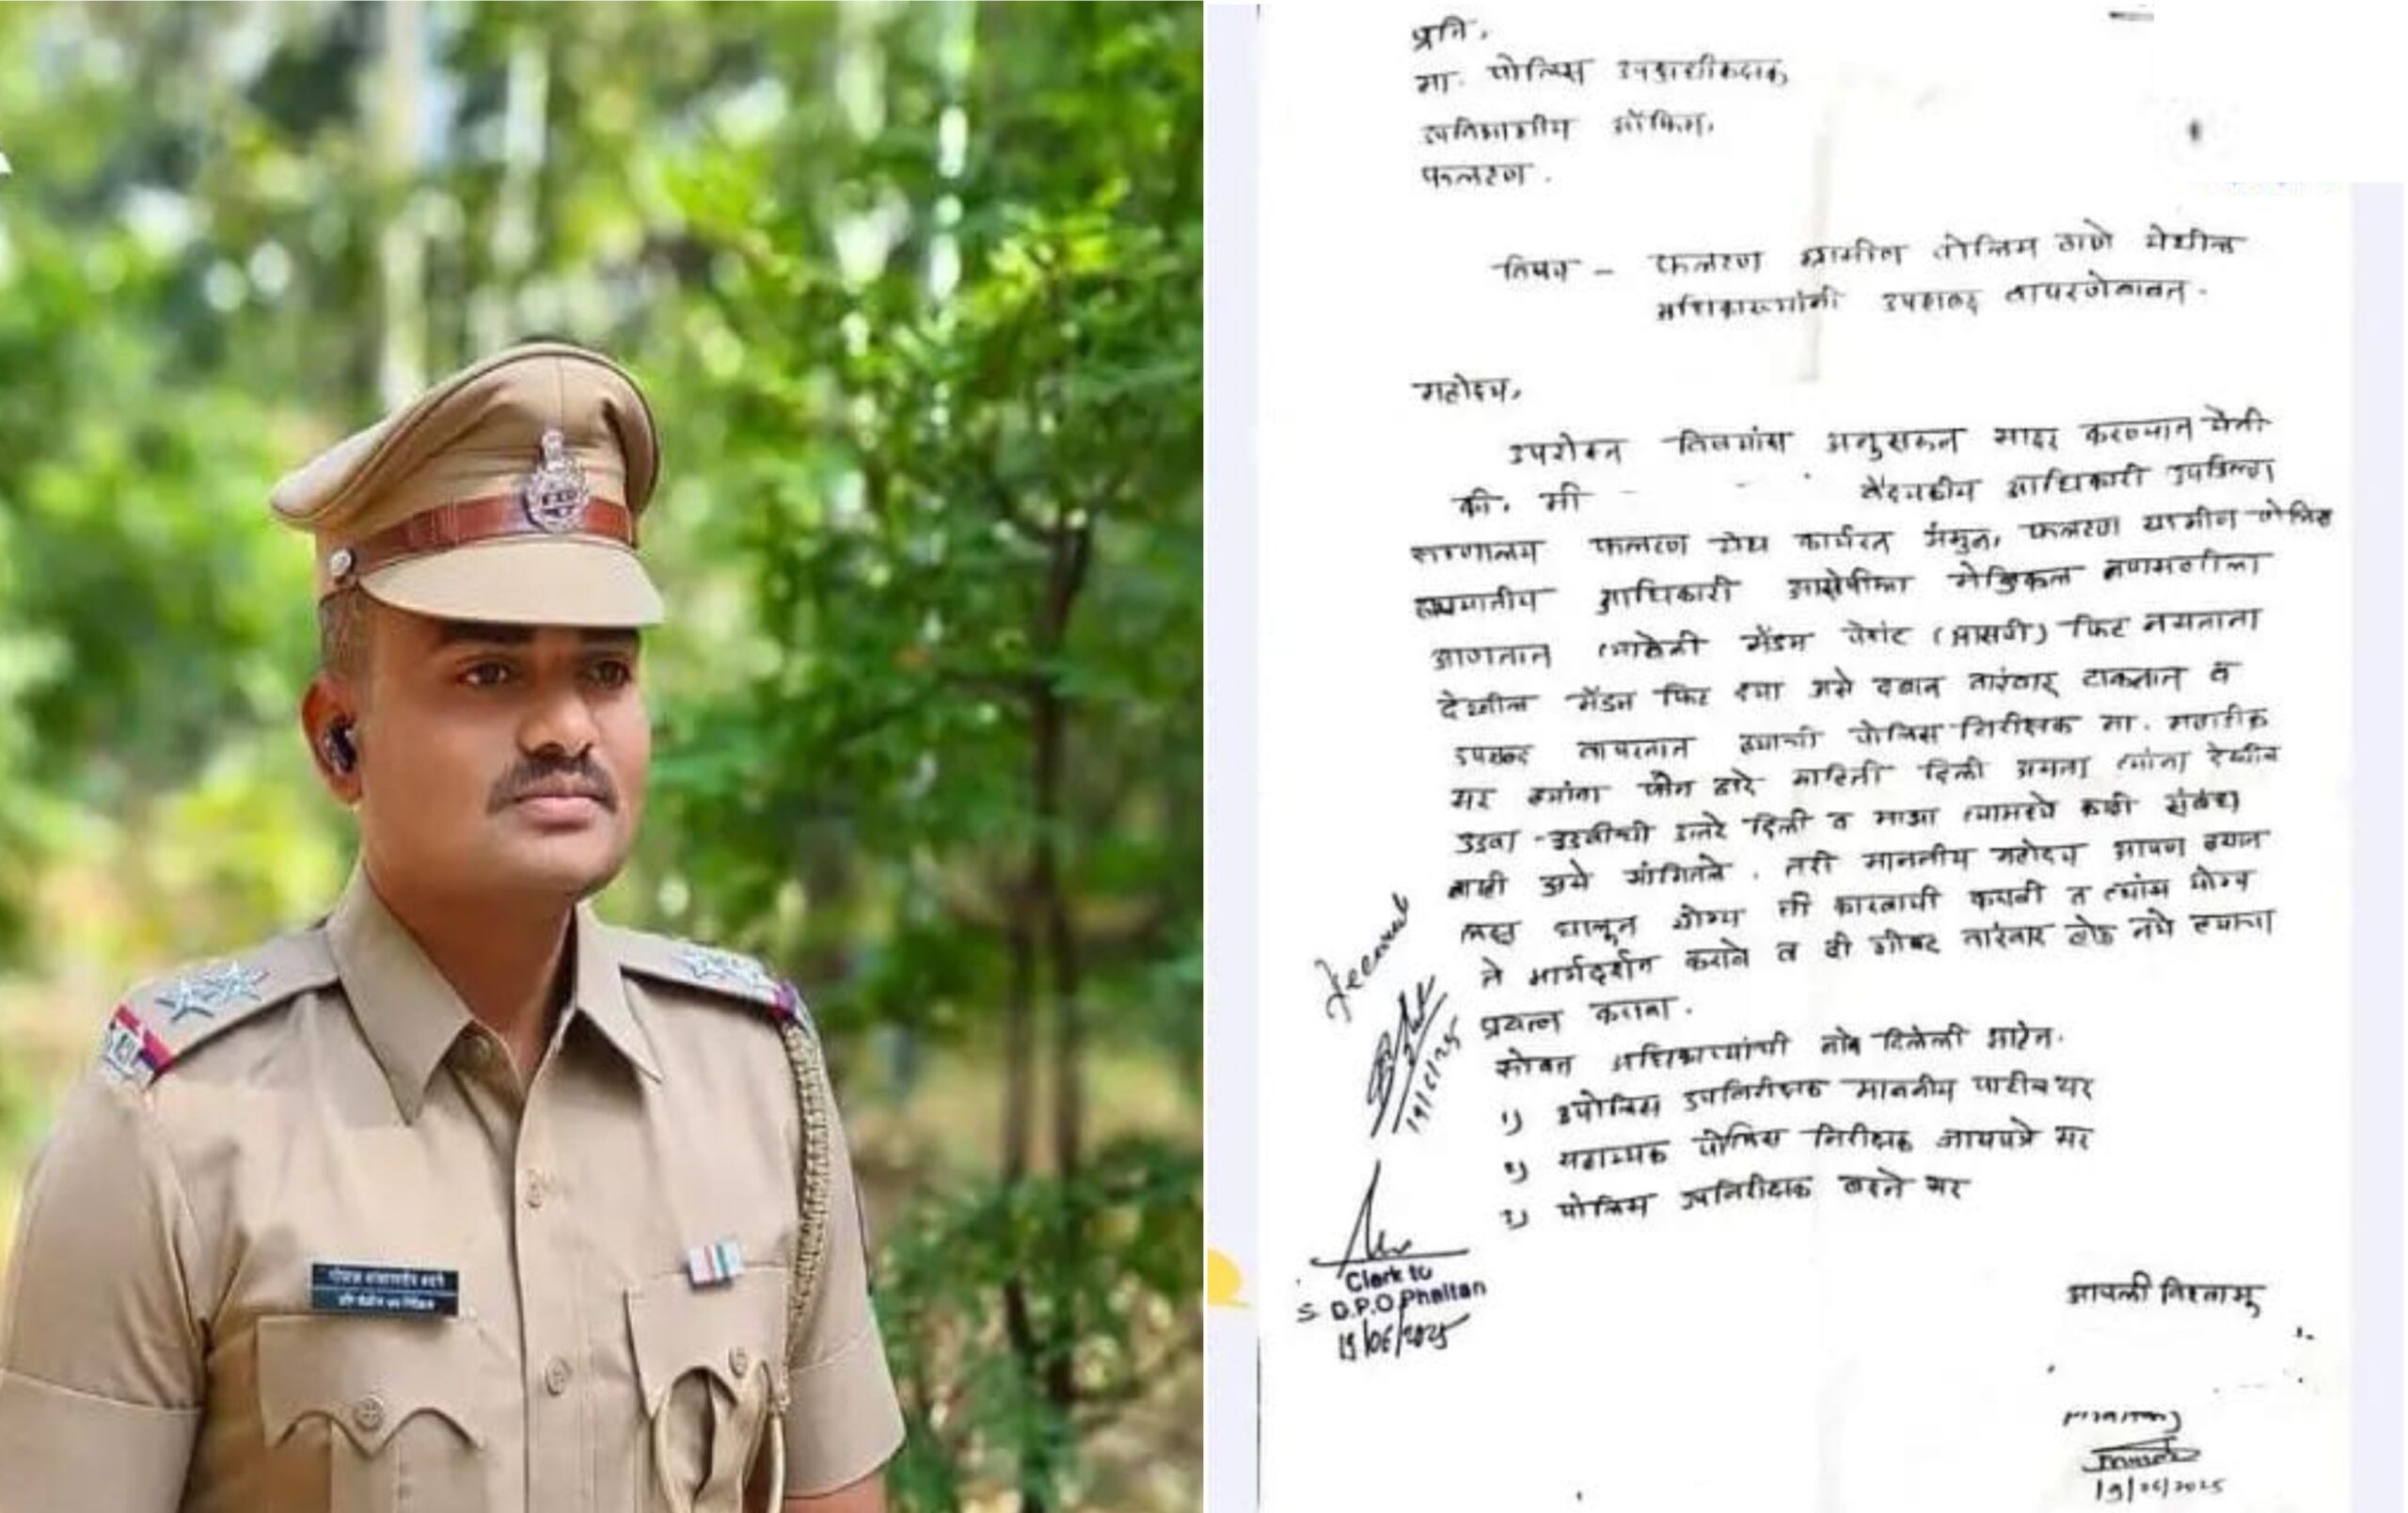 प्रति,
मा. पोलिस उपअधीक्षक,
उपविभागीय ऑफिस,
फलटण.
विषय - फलटण ग्रामीण पोलिस ठाणे येथील
अधिकाऱ्यांनी उपशब्द वापरणेबाबत.
महोदय,
उपरोक्त विषयांस अनुसरून सादर करण्यात येती
की, मी वैद्यकीय अधिकारी उपजिल्हा
रुग्णालय फलटण येथे कार्यरत असुन, फलटण ग्रामीण पोलिस
अधिकारी आरोपीला मेडिकल तपासणीला
आणतात त्यावेळी मॅडम पेशंट (आरोपी) फिट नसताना
देखील मॅडम फिट द्या असे दबाव वारंवार टाकतात व
उपशब्द वापरतात ह्याची पोलिस निरीक्षक मा. महाडीक
सर ह्यांना फोन द्वारे माहिती दिली असता त्यांना देखील
उडवा-उडवीची उत्तरे दिली व माझा त्यामध्ये काही संबंध
नाही असे सांगितले. तरी माननीय महोदय आपण ह्यात
लक्ष घालून योग्य ती कारवायी करावी व त्यांस योग्य
ते मार्गदर्शन करावे व ही गोष्ट वारंवार होऊ नये ह्याचा
प्रयत्न करावा.
सोबत अधिकाऱ्यांची नावे दिलेली आहेत.
१) पोलिस उपनिरीक्षक माननीय पाटील सर
२) सहाय्यक पोलिस निरीक्षक जायपत्रे सर
३) पोलिस उपनिरीक्षक बदने सर
आपली विश्वासू
19/06/2025
Received
19/6/25
Clerk to
S. D.P.O. Phaltan
19/06/2025